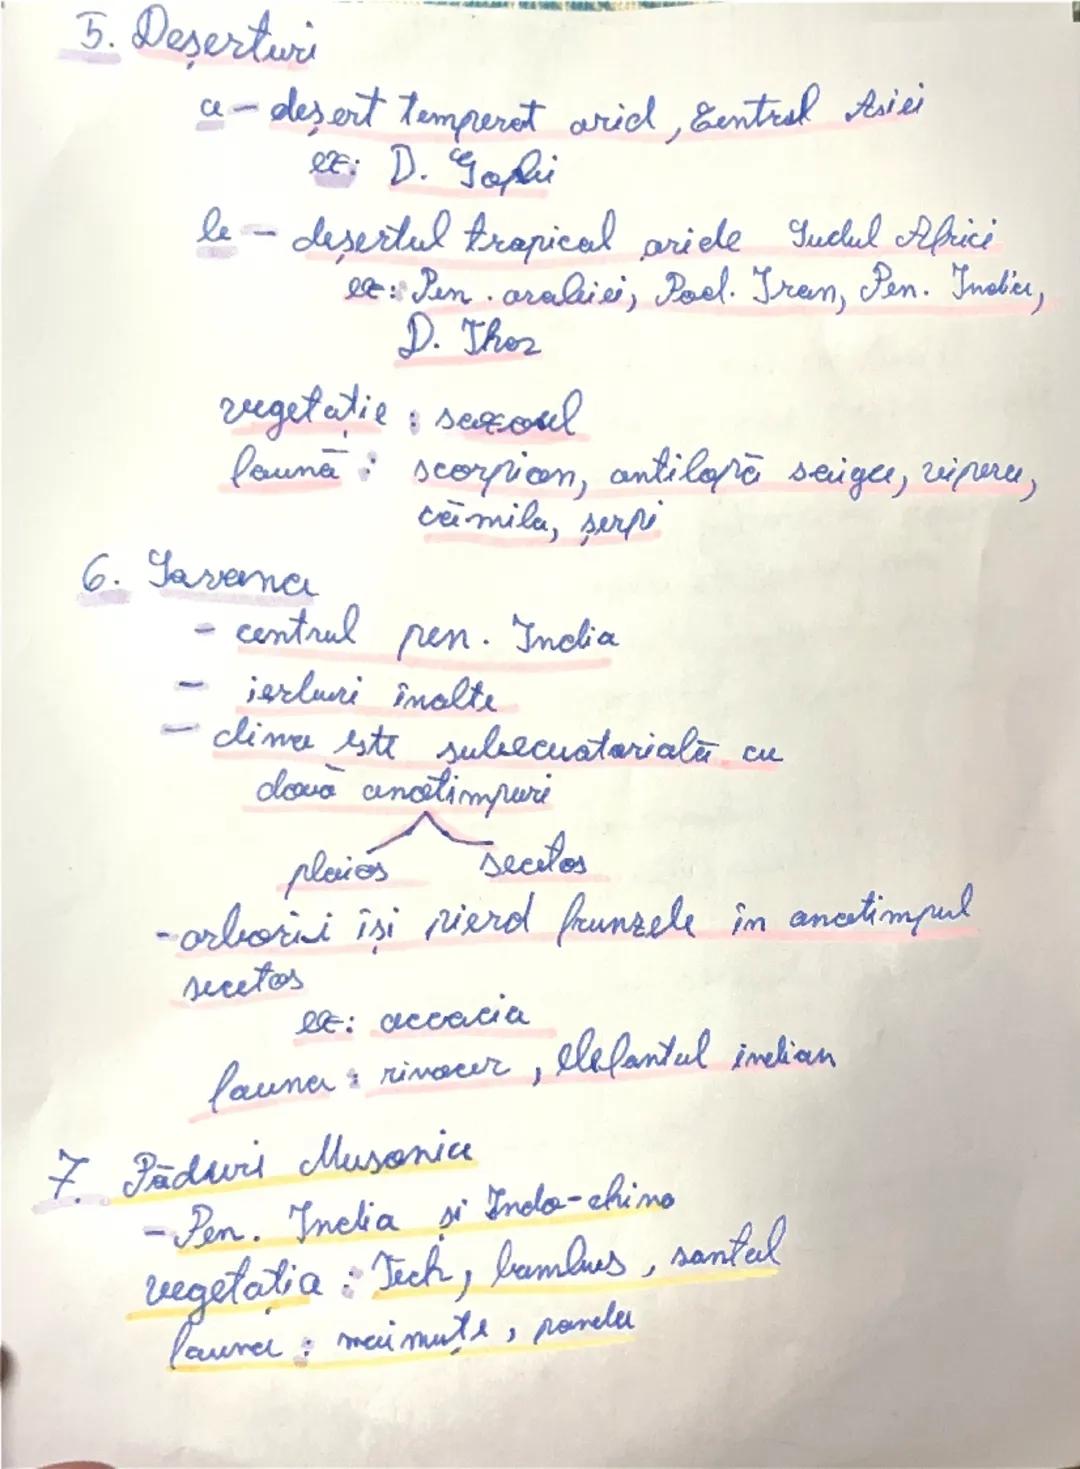 5. Deșerturi
a - deșert temperat arid, Centrul Asiei
ex: D. Gophi
b - deșertul tropical aride Sudul Africi
ex: Pen. arabiei, Pod. Iran, Pen. India,
D. Thar
vegetație : saxaul
faună : scorpion, antilopă saiga, vipera,
cămila, șerpi
6. Savana
- centrul pen. India
- ierburi înalte
- clima este subecuatorială cu
două anotimpuri
ploios secetos
- arborii își pierd frunzele în anotimpul
secetos
ex: accacia
fauna : rinocer, elefantul indian
7. Păduri Musonice
- Pen. India și Indo-china
vegetația : Teck, bambus, santal
fauna : maimuțe, panda